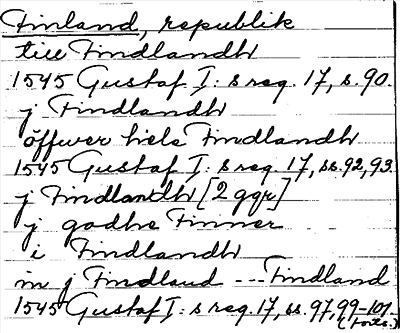 Finland, republik
till Findlandh
1545 Gustaf I: s reg. 17, s. 90.
j Findlandh
öffwer hele Findlandh
1545 Gustaf I: s reg. 17, ss. 92, 93.
j Findlandh [2 ggr]
j godhe Finner
i Findlandh
in j Findland --- Findland
1545 Gustaf I: s reg. 17, ss. 97, 99-101.
(forts.)